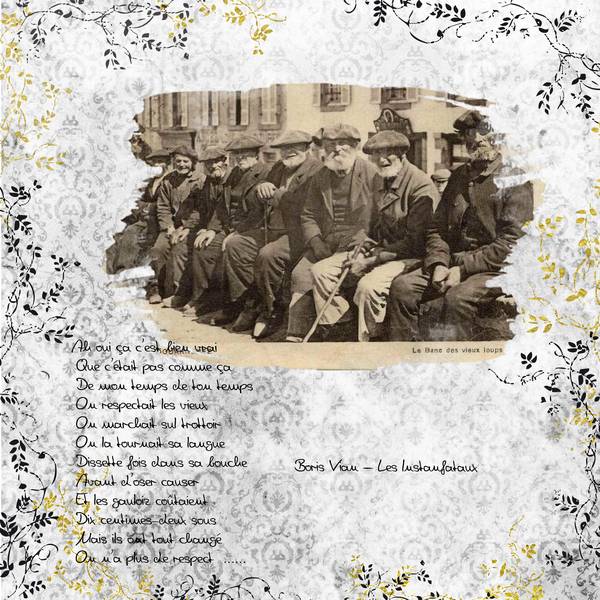 Le Banc des vieux loups
Ah oui ça c'est bien vrai
Que c'était pas comme ça
De mon temps de ton temps
On respectait les vieux
On marchait sul trottoir
On la tournait sa langue
Dissette fois dans sa bouche
Avant d'oser causer
Et les gauloiz coûtaient
Dix centimes-deux sous
Mais ils ont tout changé
On n'a plus de respect ......
Boris Vian – Les Instanfataux